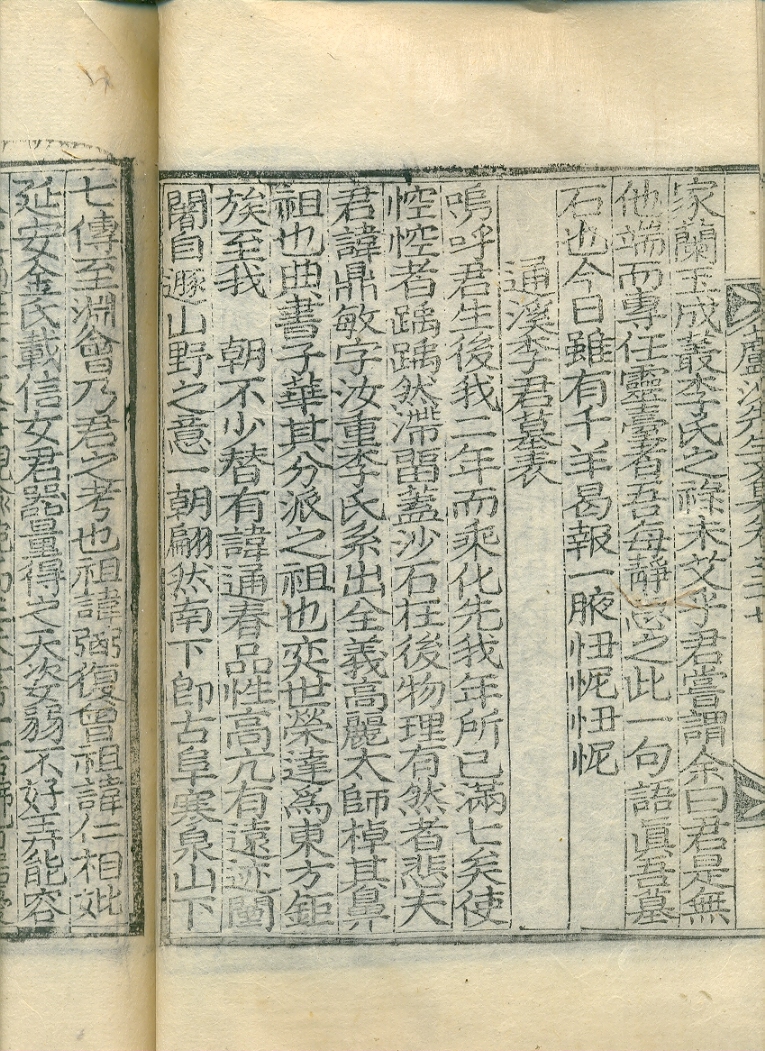 蘆沙先生文集卷之二十七
家蘭玉成叢李氏之祿未艾乎君嘗謂余曰君是無
他端而專任靈臺者吾每靜思之此一句語眞吾墓
石也今日雖有千羊曷報一腋忸怩忸怩
通溪李君墓表
嗚呼君生後我二年而乘化先我年所已滿七矣使
悾悾者踽踽然滯留蓋沙石在後物理有然者悲夫
君諱鼎敏字汝重李氏系出全義高麗太師棹其鼻
祖也典書子華其分派之祖也奕世榮達爲東方鉅
族至我　朝不少替有諱通春品性高亢有遠迹閫
閣自遯山野之意一朝翩然南下卽古阜寒泉山下
七傳至淵曾乃君之考也祖諱弼復曾祖諱仁相妣
延安金氏載信女君器量得之天姿弱不好弄能容